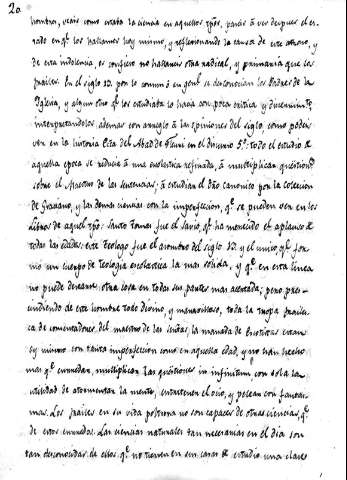 20
hombre, veais como estaba la ciencia en aquellos tpōs, paseis à ver despues el es-
tado en qē los hallamos hoy mismo, y reflexionando la causa de este atraso, y
de esta indolencia, os confieso no hallareis otra radical, y primaria que los
frailes. En el siglo 12. por lo comun ò en genl se desconocian los Padres de la
Yglesia, y alguno qē los estudiaba lo hacia con poca critica y discernimto
interpretandolos ademas con arreglo à las opiniones del siglo, como podeis
ver en la historia Ecca del Abad de Fleuri en el discurso 5º: todo el estudio de
aquella epoca se reducia à una escolastica refinada, à multiplicar questiones
sobre el Maestro de las sentencias; à estudiar el dro canonico por la coleccion
de Graciano, y las demas ciencias con la imperfeccion, qē se pueden ver en los
Libros de aquel tpō: Santo Tomas fue el savio, qē ha merecido el aplauso de
todas las edades: este Teologo fue el asombro del siglo 12. y el unico qē for-
mò un cuerpo de Teologia escolastica la mas solida, y qē en esta linea
no puede desearse otra cosa en todas sus partes mas acertada; pero pres-
cindiendo de este hombre todo divino, y maravilloso, toda la tropa frailes-
ca de comentadores del maestro de las sentas, la manada de Escotistas estan
oy mismo con tanta imperfeccion como en aquella edad, y no han hecho
mas qē enrredar, multiplicar las questiones in infinitum con sola la
utilidad de atormentar la mente, entretener el ocio, y pelear con fantas-
mas. Los frailes en su vida poltrona no son capaces de otras ciencias, qē
de estos enrredos. Las ciencias naturales tan necesarias en el dia son
tan desconocidas de ellos, qē no tienen en sus casas de estudio una clase